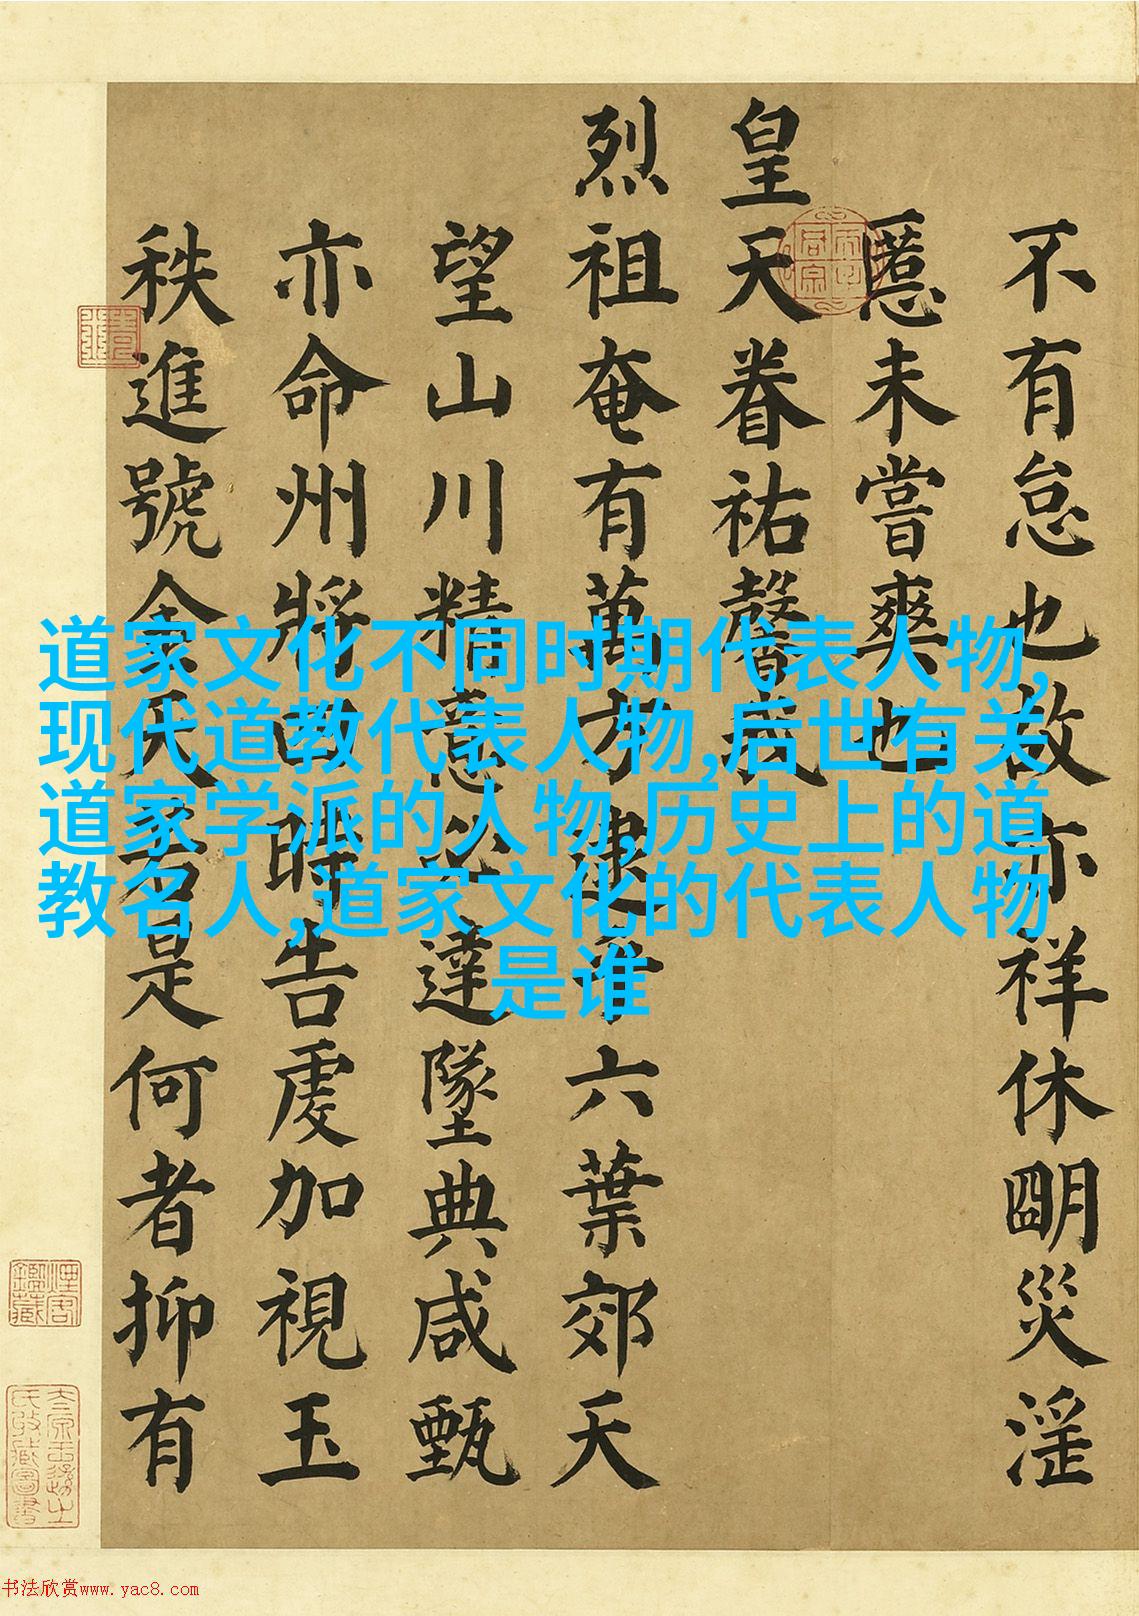 不有怠也故亦祥休朙災淫
慝未嘗爽也
皇天眷祐馨我
烈祖奄有萬方逮六葉郊天
望山川精意達墜典咸甄
亦命州將四時告虔加視玉
秩進號金天是何者抑有
道家文化不同时期代表人物,
现代道教代表人物,后世有关
道家学派的人物,历史上的道
教名人,道家文化的代表人物
是谁
书法欣赏www.yac8.com